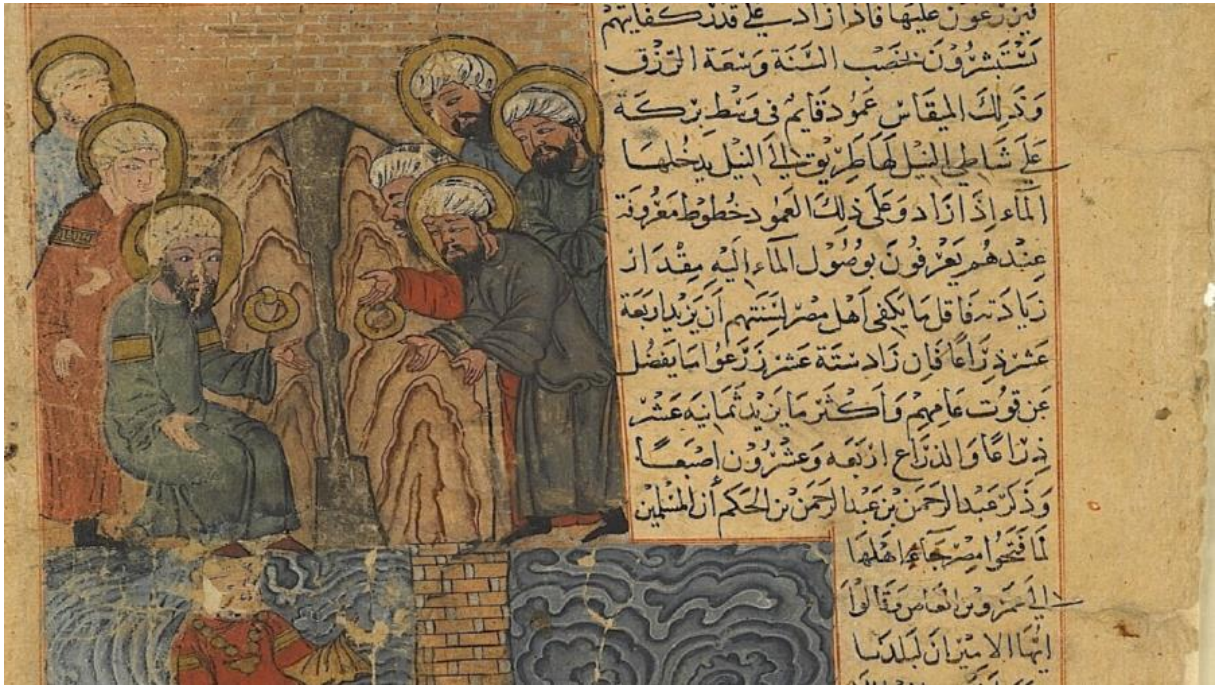 فيزرعون عليها فاذا زادت على قدر كفايتهم
تستبشرون بخصب السنة وسعة الرزق
وذلك المقياس عمود قايم فى وسط بركة
على شاطى النيل لها طريق الى النيل يدخلها
الماء اذا زاد وعلى ذلك العمود خطوط معروفة
عندهم يعرفون بوصول الماء اليه مقدار
زيادته فاقل ما يكفى اهل مصر لسنتهم ان يزيد اربعة
عشر ذراعا فان زاد ستة عشر زرعوا ما يفضل
عن قوت عامهم واكثر ما يزيد ثمانيه عشر
ذراعا والذراع اربعه وعشرون اصبعا
وذكر عبد الرحمن بن عبد الرحمن بن الحكم أن المسلمين
لما فتحوا مصر جاء اهلها
الى عمرو بن العاص وقالوا
ايها الامير ان لبلدنا